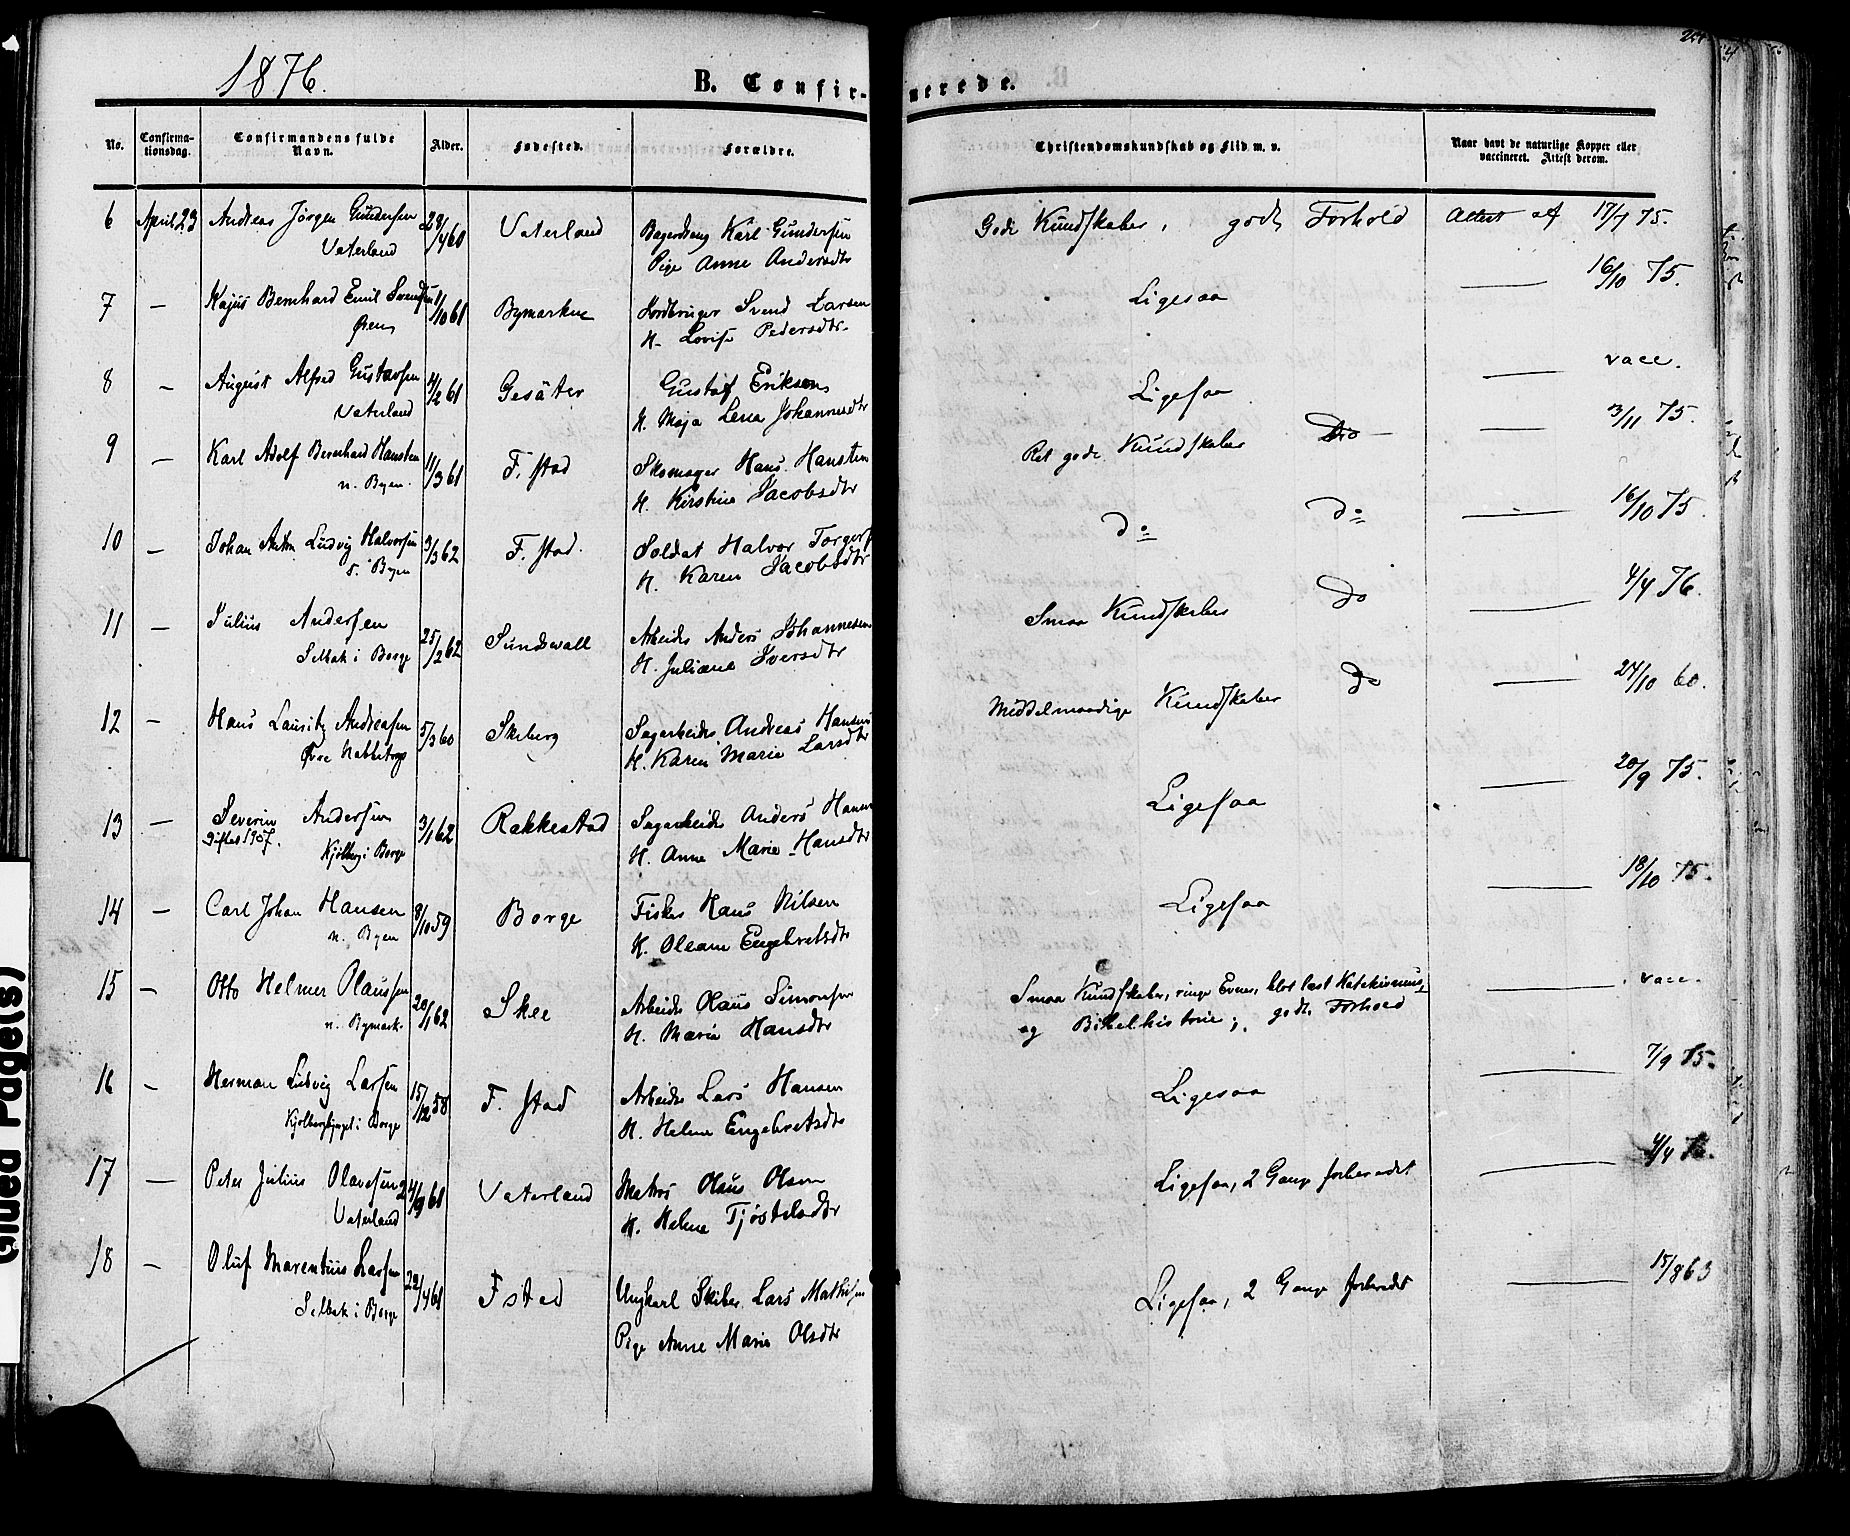 1876.
B. Confir-
merede.
No.
Confirma-
tionsdag.
Confirmandens fulde
Navn.
Alder.
Fødested.
Forældre.
Christendomskundskab og Flid m. v.
Naar havt de naturlige Kopper eller
vaccineret. Attest derom.
6 April 23 Andreas Jörgen Gundersen 29/4 60 Vaterland Karl Gundersen Gode Kundskaber, godt Forhold Attest af 17/7 75.
Vaterland Pige Anne Andersdtr
7 — Kajus Bernhard Emil Svendsen 1/10 61 Bymarken Jordbruger Svend Larsen Ligesaa — 16/10 75.
H. Lovise Pedersdtr.
8 — August Alfred Gustavsen 4/2 61 Gesäter Gustaf Eriksen Ligesaa — vacc.
Vaterland H. Maja Lena Johannesdtr
9 — Karl Adolf Bernhard Hansten 11/3 61 F. stad Skomager Hans Hansten Ret gode Kundskaber Do — 3/11 75.
n. Byen. H. Kirstine Jacobsdtr
10 — Johan Anton Ludvig Halvorsen 9/3 62 F. stad. Soldat Halvor Torgers do do — 16/10 75.
Byen H. Karen Jacobsdtr
11 — Julius Andersen 25/2 62 Sundswall Arbeider Anders Johannesen Smaa Kundskaber do — 4/4 76.
Selbak i Borge H. Juliane Iversdtr
12 — Hans Lauritz Andreasen 5/3 60 Skeberg Sagarbeider Andreas Hansen Middelmaadige Kundskaber do — 24/10 60.
Øvre Nabbetorp H. Karen Marie Larsdtr
13 — Severin Andersen 3/1 62 Rakkestad Sagarbeider Anders Hansen Ligesaa — 20/9 75.
Giftes 1907. Kjölberg i Borge H. Anne Marie Hansdtr
14 — Carl Johan Hansen 8/10 59 Borge Fisker Hans Nilsen Ligesaa — 18/10 75.
n. Byen H. Oleane Engebretsdtr
15 — Otto Helmer Olaussen 20/1 62 Skee Arbeider Olaus Simonsen Smaa Kundskaber, ringe Evner, blot læst Katekismus — vacc.
n. Bymark. H. Maria Hansdtr og Bibelhistorie; godt Forhold
16 — Herman Ludvig Larsen 15/12 58 F. stad Arbeider Lars Hansen Ligesaa — 7/9 75.
i Borge H. Helene Engebretsdtr
17 — Peter Julius Olavesen 24/9 61 Vaterland Matros Olaus Olsen Ligesaa, 2 Gange forberedt — 4/4 76.
Vaterland H. Helene Tjöstelsdtr
18 — Oluf Marentius Larsen 22/4 61 F stad Ungkarl Skiber Lars Mathisen Ligesaa, 2 Gange forberedt — 15/8 63
Selbak i Borge Pige Anne Marie Olsdtr
Glued Page(s)